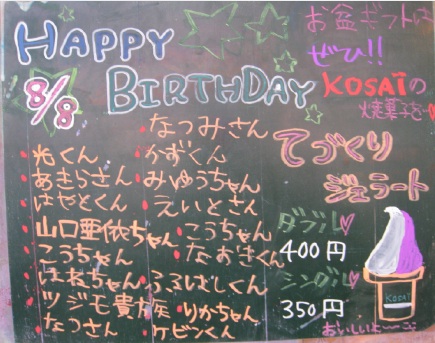 HAPPY
BIRTHDAY
8/8
お盆ギフトは
ぜひ!!
KOSAÏの
焼菓子を
なつみさん
光くん
かずくん
あきらさん
みゆうちゃん
はやとくん
えいとさん
山口亜依ちゃん
こうちゃん
こうちゃん
なおきくん
はねちゃん
ふるはしくん
ツジモ貴族
りかちゃん
なつさん
ケビンくん
てづくり
ジェラート
ダブル
400円
シングル
350円
KOSAÏ
おいしいよ〜